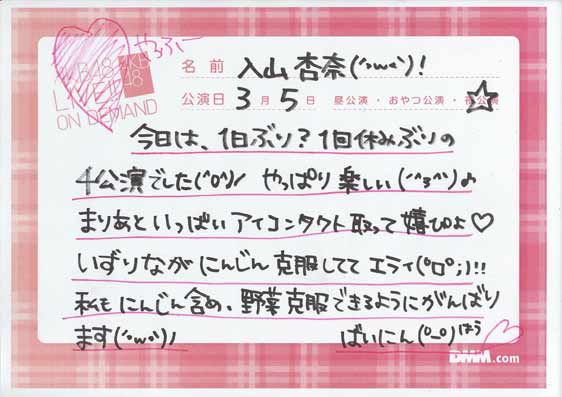 やふぅー
AKB48
LIVE!!
ON DEMAND
名前 入山 杏奈(^・ω・^)!
公演日 3月5日 昼公演・おやつ公演・夜公演
今日は、1日ぶり?1回休みぶりの
4公演でした(^o^)ノ やっぱり楽しい(^^3^^)♪
まりあといっぱいアイコンタクト取って嬉ぴよ♡
いずりながにんじん克服しててエライ(°ロ°;)!!
私もにんじん含め、野菜克服できるようにがんばり
ます(^・ω・^)ノ ばいにん(°_○)
DMM.com